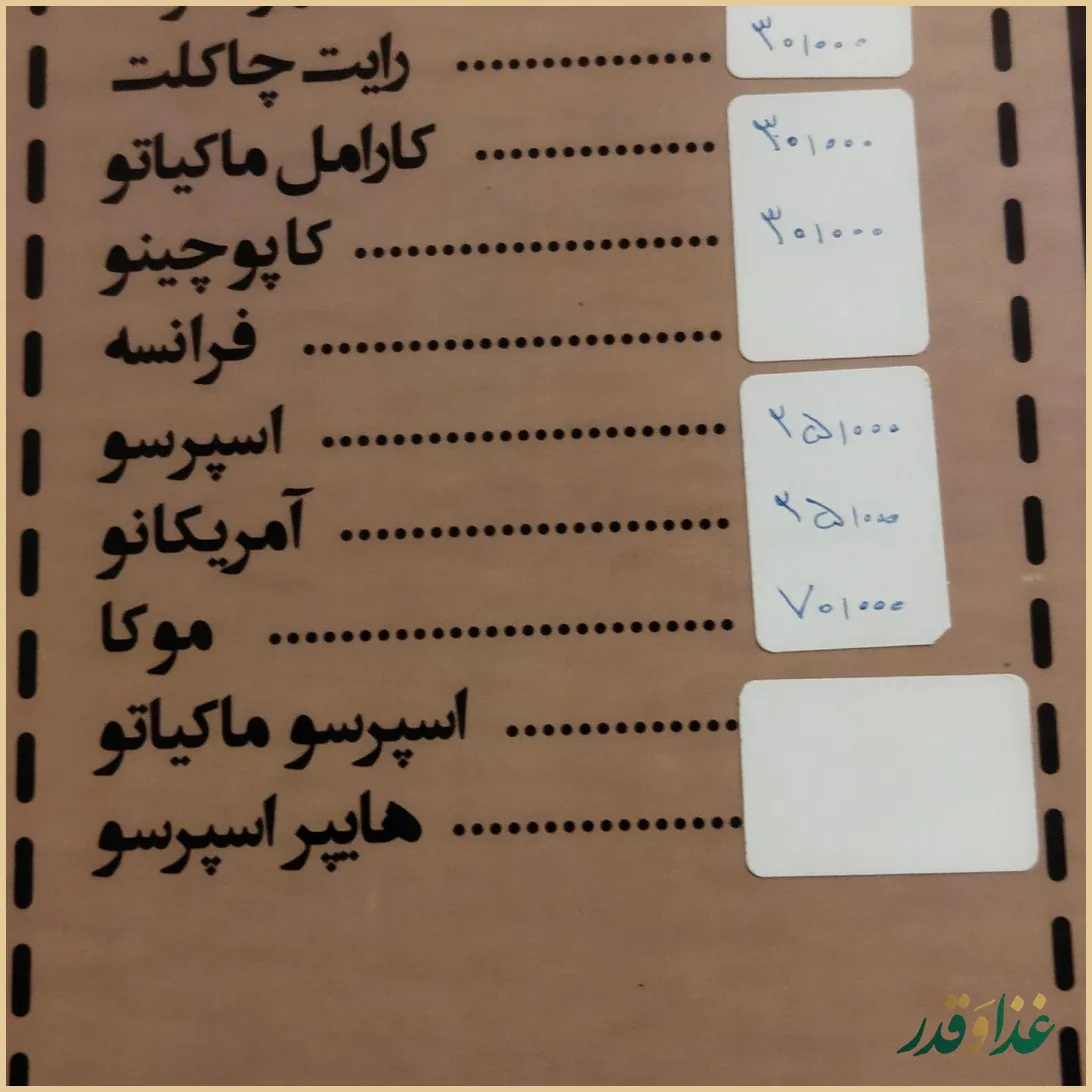 رایت چاکلت .............. ۳۰/۰۰۰
کارامل ماکیاتو .............. ۳۰/۰۰۰
کاپوچینو ..................... ۳۰/۰۰۰
فرانسه ........................
اسپرسو ....................... ۲۵/۰۰۰
آمریکانو ...................... ۲۵/۰۰۰
موکا ........................... ۷۰/۰۰۰
اسپرسو ماکیاتو ..............
هایپر اسپرسو .................
غذا و قدر